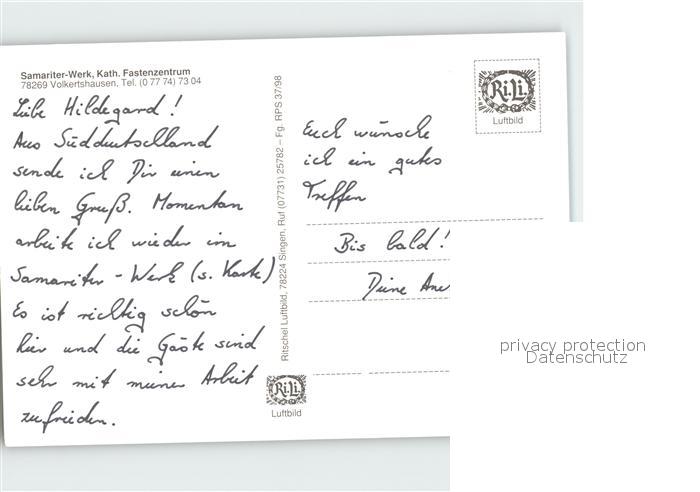 Samariter-Werk, Kath. Fastenzentrum
78269 Volkertshausen, Tel. (0 77 74) 73 04
Liebe Hildegard!
Aus Süddeutschland
sende ich Dir einen
lieben Gruß. Momentan
arbeite ich wieder im
Samariter-Werk (s. Karte)
Es ist richtig schön
hier und die Gäste sind
sehr mit meiner Arbeit
zufrieden.
Ritschel Luftbild, 78224 Singen, Ruf (07731) 25782 – Fg. RPS 37/98
Ri.Li.
Luftbild
Euch wünsche
ich ein gutes
Treffen
Bis bald!
Deine
Ri.Li.
Luftbild
privacy protection
Datenschutz